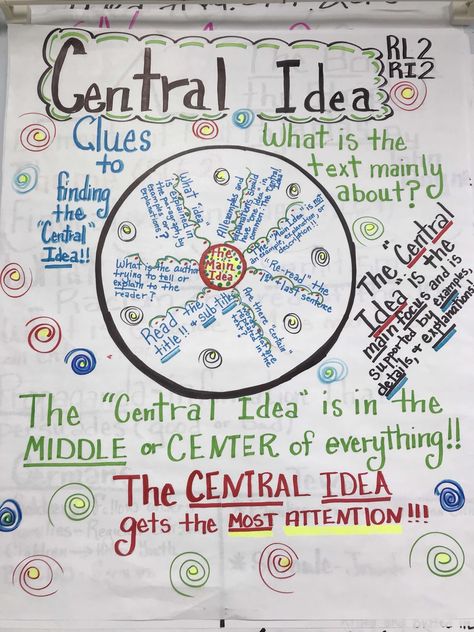 Central Idea
RL2
RI2
Clues
to
finding
the
"Central"
Idea!!
What is the
text mainly
about?
The "Central
Idea" is the
main focus and is
supported by examples,
details, & explanations!
What "idea"
is explained
the paragraph by
examples or
explanations?
All examples and
have the "idea" in
common
"Main idea" is not
an example, or
description!!
"Re-read" the
last sentence
Are there "center"
Read the
title!! & sub-title
What is the author
trying to tell or
explain to the
reader?
The
Main
Idea
The "Central Idea" is in the
MIDDLE or CENTER of everything!!
The CENTRAL IDEA
gets the MOST ATTENTION!!!